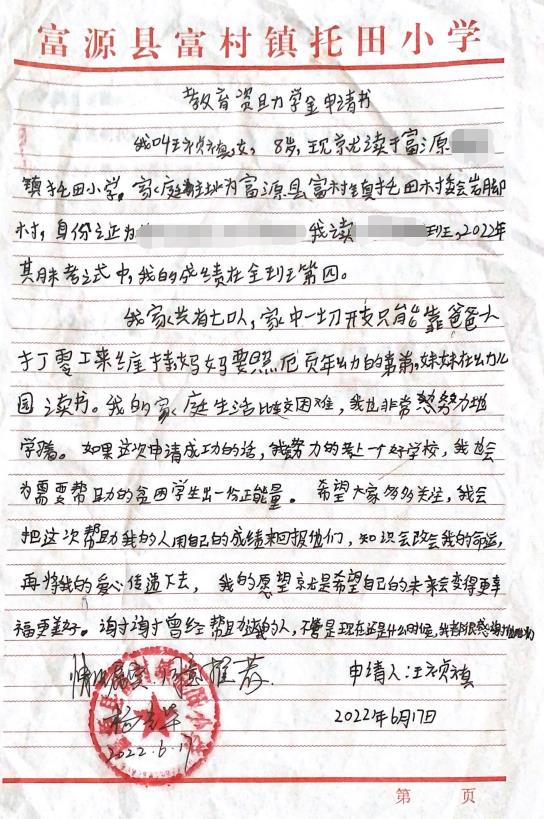 富源县富村镇托田小学
教育资助学金申请书
我叫王 女，8岁，现就读于富源
镇托田小学。家庭住址为富源县富村镇托田村委会岩脚
村，身份证为 我读 班，2022年
其月末考试中，我的成绩在全班第四。
我家共有七口人，家中一切开支只能靠爸爸人
打零工来维持，妈妈要照 出的弟弟，妹妹在幼儿
园读书。我的家庭生活比较困难，我也非常 努力地
学 。如果这次申请成功的话，我努力的考上一个好学校，我也会
为需要帮助的贫困学生出一份正能量。希望大家多多关注，我会
把这次帮助我的人用自己的成绩来回报他们，知识会改会我的命运，
再将我的爱心传递下去，我的愿望就是希望自己的未来会变得更幸
福更美好。谢谢谢谢曾经帮助过我的人，不管是现在还是什么时候，我都很感谢
情况属实.同意推荐 申请人：王
2022年6月17日
2022.6.17
第 页